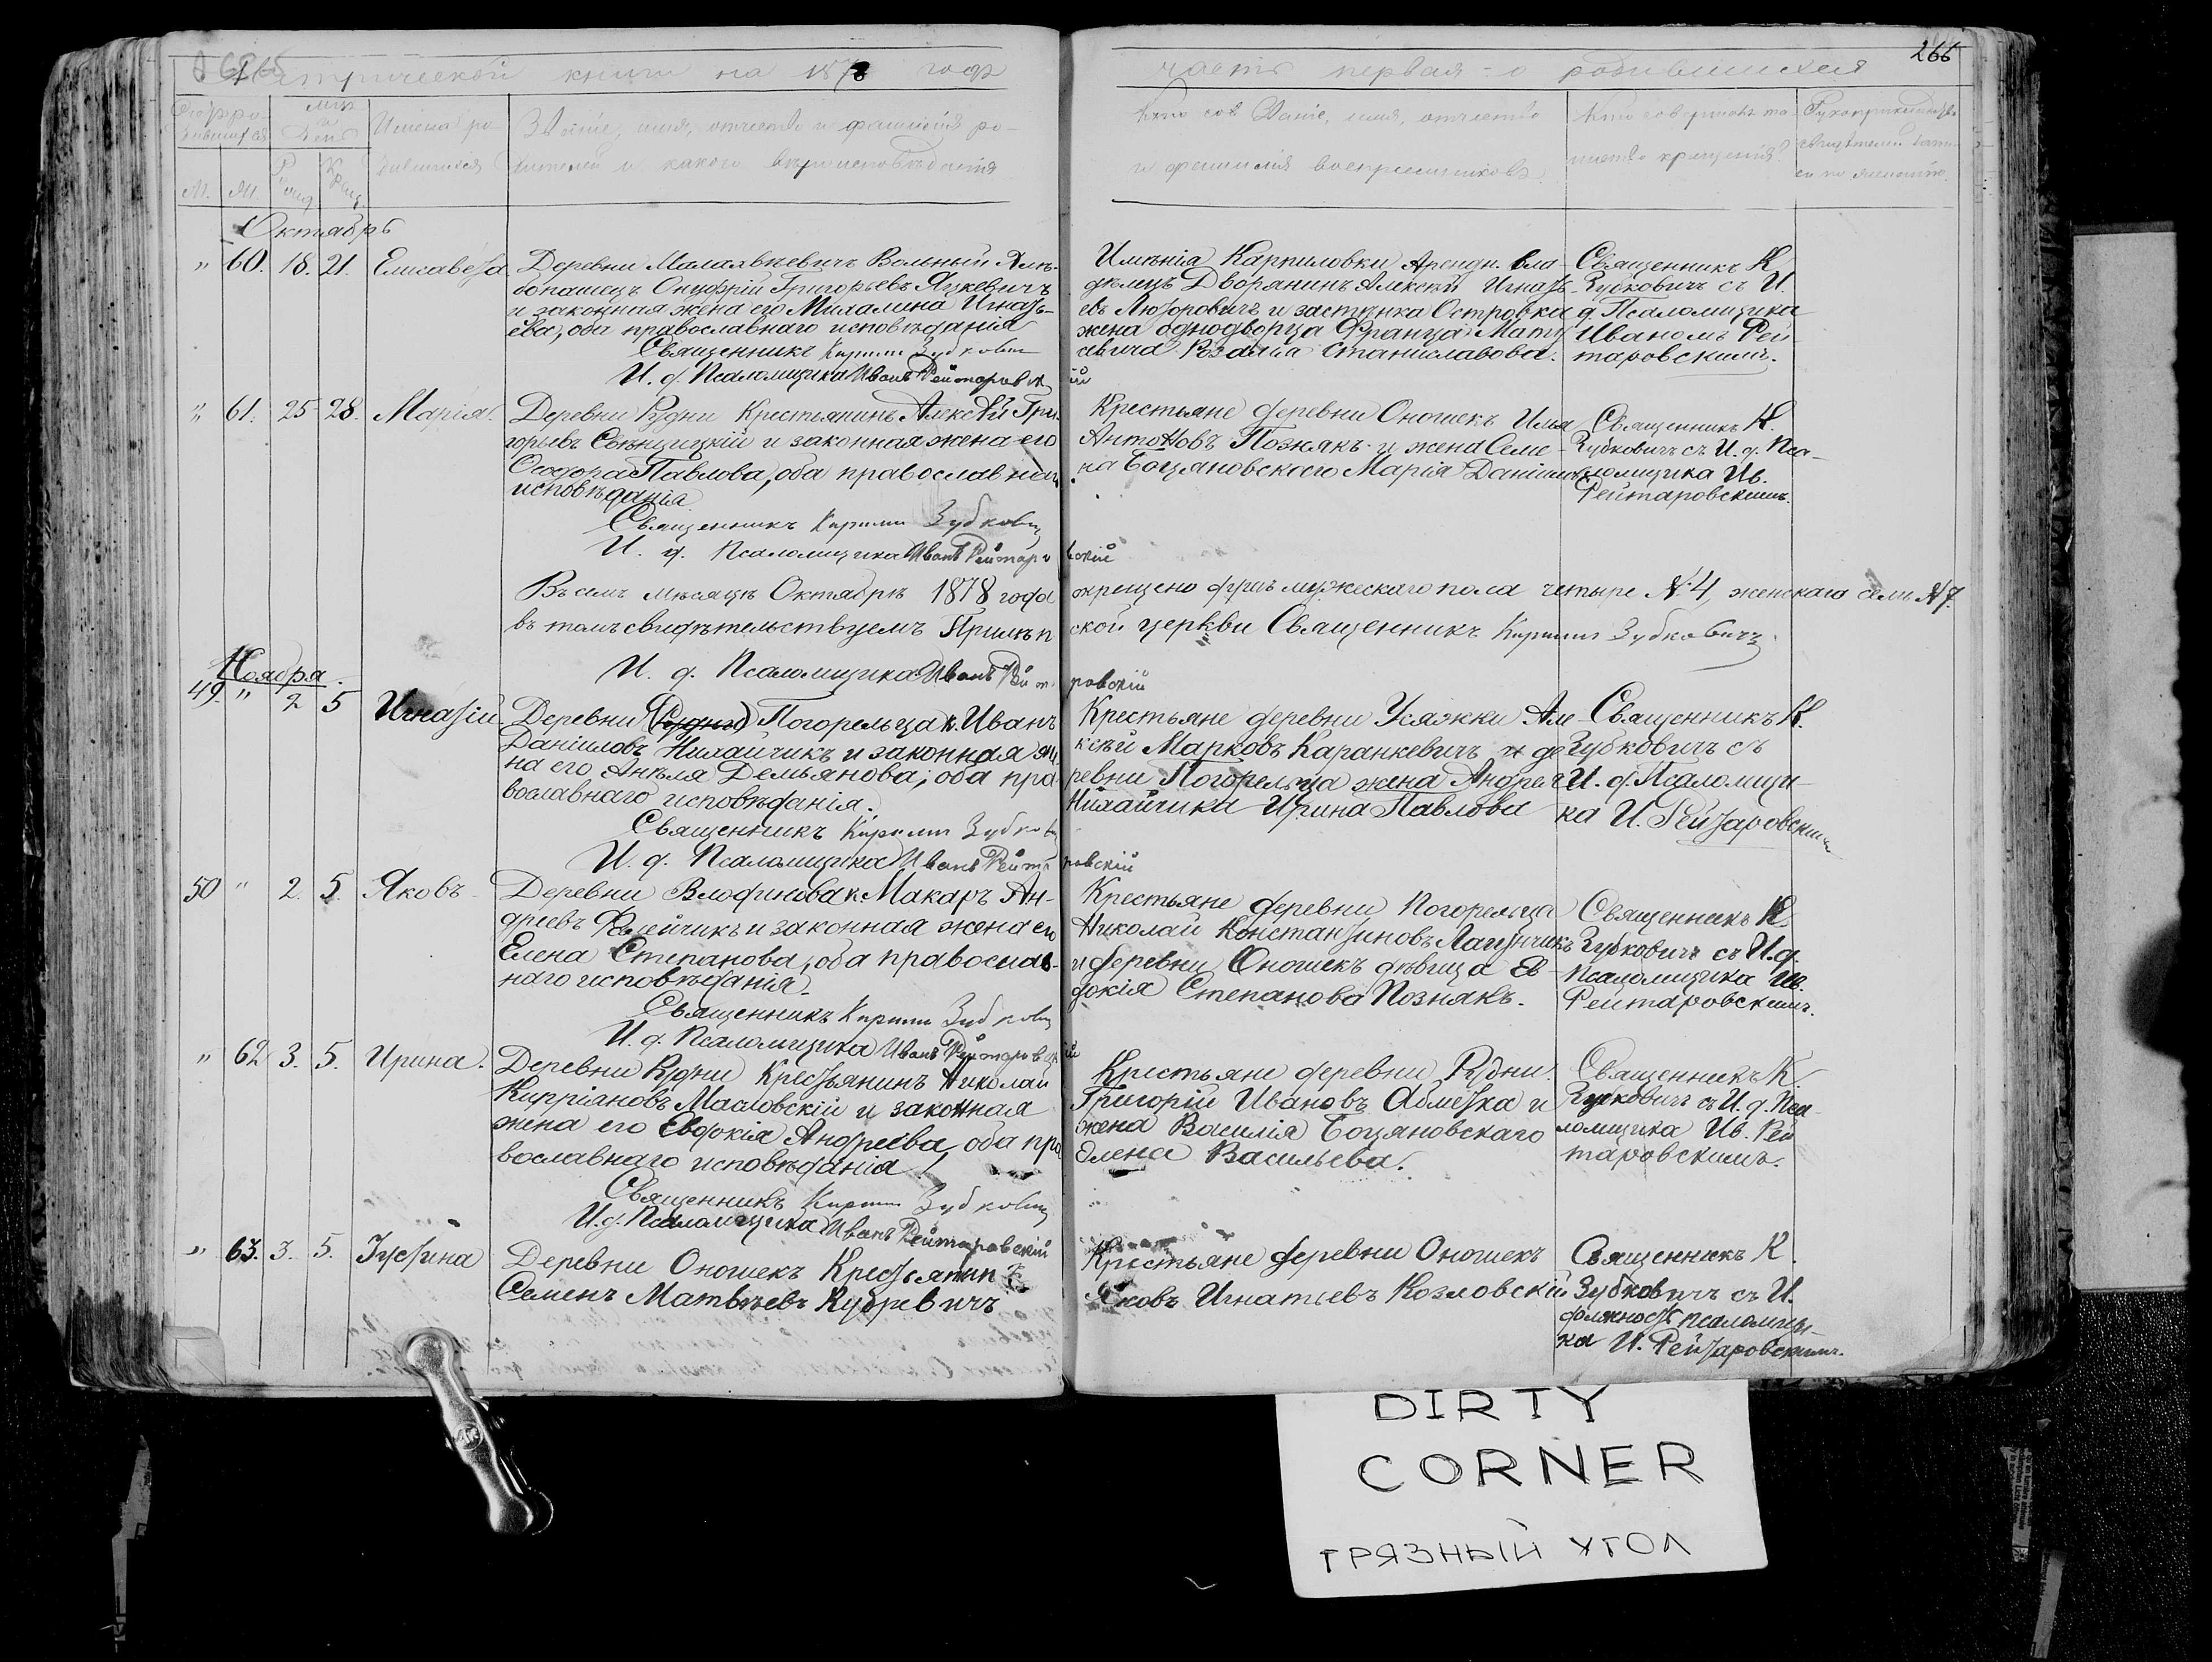 Метрической книги на 1878 годъ
часть первая о родившихся
266
Счетъ ро-
дившихся
Мѣс.
и
День
Имена ро-
дившихся
Званіе, имя, отчество и фамилія ро-
дителей и какого вѣроисповѣданія
Званіе, имя, отчество
и фамилія воспріемниковъ.
Кто совершалъ та-
инство крещенія
Рукоприкладство
свидѣтелей запи-
си по желанію.
М.
Октябрь
" 60. 18. 21. Елисавета
Деревни Вольный Хлѣ-
бопашецъ Онуфрій Григорьевъ Яцкевичъ
и законная жена его Михалина Игнать-
ева, оба православнаго исповѣданія
Священникъ Кириллъ Зубкович
И. д. Псаломщика Иванъ Рейтаровскій
Имѣнія Карпиловки Арендн. вла-
дѣлецъ Дворянинъ Алексѣй Игнать-
евъ и застѣнка Островки
жена однодворца Франца Мату
севича Розалія Станиславова.
Священникъ К
Зубковичъ съ И.
д. Псаломщика
Иваномъ Рей
таровскимъ.
" 61. 25 28. Марія.
Деревни Рудни Крестьянинъ Алексѣй Гри-
горьевъ и законная жена его
Ѳеодора Павлова, оба православнаго
исповѣданія
Священникъ Кириллъ Зубкович
И. д. Псаломщика Иванъ Рейтаровскій
Крестьяне деревни Оношекъ Илья
Антоновъ Познякъ и жена Семе-
на Боцяновскаго Марія Даніилова
Священникъ К.
Зубковичъ съ И. д. Пса-
ломщика Ив.
Рейтаровскимъ.
Въ семъ мѣсяцѣ Октябрѣ 1878 года окрещено душъ мужескаго пола четыре №4, женскаго семь №7.
въ томъ свидѣтельствуемъ Прилѣпской церкви Священникъ Кириллъ Зубковичъ
И. д. Псаломщика Иванъ Рейтаровскій
Ноября.
49. " 2 5 Игнатій
Деревни (Рудни) Погорельца к. Иванъ
Даніиловъ Михайчикъ и законная же
на его Анѣля Демьянова, оба пра
вославнаго исповѣданія.
Священникъ Кириллъ Зубкович
И. д. Псаломщика Иванъ Рейтаровскій
Крестьяне деревни Усяжки Але-
ксѣй Марковъ Каранкевичъ и де
ревни Погорельца жена Андрея
Михайчика Ирина Павлова
Священникъ К.
Зубковичъ съ
И. д. Псаломщи-
ка И. Рейтаровским
50 " 2. 5. Яковъ
Деревни к. Макаръ Ан-
дреевъ и законная жена его
Елена Степанова, оба православ-
наго исповѣданія.
Священникъ Кириллъ Зубкович
И. д. Псаломщика Иванъ Рейтаровскій
Крестьяне деревни Погорельца
Николай Константиновъ Лагунчикъ
и деревни Оношекъ дѣвица Ев-
докія Степанова Познякъ.
Священникъ К
Зубковичъ съ И. д.
Псаломщика Ив.
Рейтаровскимъ.
" 62 3. 5. Ирина.
Деревни Рудни Крестьянинъ Николай
Кипріановъ Масловскій и законная
жена его Евдокія Андреева, оба пра
вославнаго исповѣданія.
Священникъ Кириллъ Зубкович
И. д. Псаломщика Иванъ Рейтаровскій
Крестьяне деревни Рудни
Григорій Ивановъ Абметка и
жена Василія Боцяновскаго
Елена Васильева.
Священникъ К.
Зубковичъ съ И. д. Пса-
ломщика Ив. Рей
таровскимъ.
" 63. 3. 5. Іустина
Деревни Оношекъ Крестьянинъ
Семенъ Матвѣевъ Кудревичъ
Крестьяне деревни Оношекъ
Яковъ Игнатьевъ Козловскій
Священникъ К.
Зубковичъ съ И.
должность псаломщи-
ка И. Рейтаровскимъ.
DIRTY
CORNER
ГРЯЗНЫЙ УГОЛ